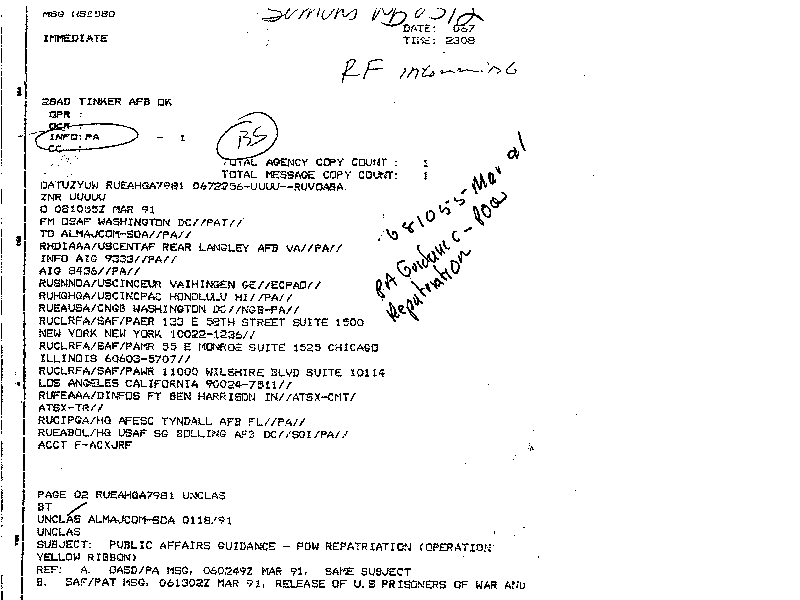 MSG
IMMEDIATE
DATE: 067
TIME: 2308
RF
28AD TINKER AFB OK
OPR :
OCR :
INFO: PA - 1
CC :
BS
TOTAL AGENCY COPY COUNT : 1
TOTAL MESSAGE COPY COUNT: 1
DATUZYUW RUEAHQA7981 0672256-UUUU--RUVOABA.
ZNR UUUUU
O 081055Z MAR 91
FM OSAF WASHINGTON DC//PAT//
TO ALMAJCOM-SOA//PA//
RHDIAAA/USCENTAF REAR LANGLEY AFB VA//PA//
INFO AIG 9333//PA//
AIG 8436//PA//
RUSNNOA/USCINCEUR VAIHINGEN GE//ECPAO//
RUHQHQA/USCINCPAC HONOLULU HI//PA//
RUEAUSA/CNGB WASHINGTON DC//NGB-PA//
RUCLRFA/SAF/PAER 133 E 58TH STREET SUITE 1500
NEW YORK NEW YORK 10022-1236//
RUCLRFA/SAF/PAMR 55 E MONROE SUITE 1525 CHICAGO
ILLINOIS 60603-5707//
RUCLRFA/SAF/PAWR 11000 WILSHIRE BLVD SUITE 10114
LOS ANGELES CALIFORNIA 90024-7511//
RUFEAAA/DINFOS FT BEN HARRISON IN//ATSX-CMT/
ATSX-TR//
RUCIPGA/HQ AFESC TYNDALL AFB FL//PA//
RUEABOL/HQ USAF SG BOLLING AFB DC//SGI/PA//
ACCT F-ACXJRF
081055-Mar 91
PA Guidance - POW
Repatriation
PAGE 02 RUEAHQA7981 UNCLAS
BT
UNCLAS ALMAJCOM-SOA 0118/91
UNCLAS
SUBJECT: PUBLIC AFFAIRS GUIDANCE - POW REPATRIATION (OPERATION
YELLOW RIBBON)
REF: A. OASD/PA MSG, 060249Z MAR 91, SAME SUBJECT
B. SAF/PAT MSG, 061302Z MAR 91, RELEASE OF U.S PRISONERS OF WAR AND